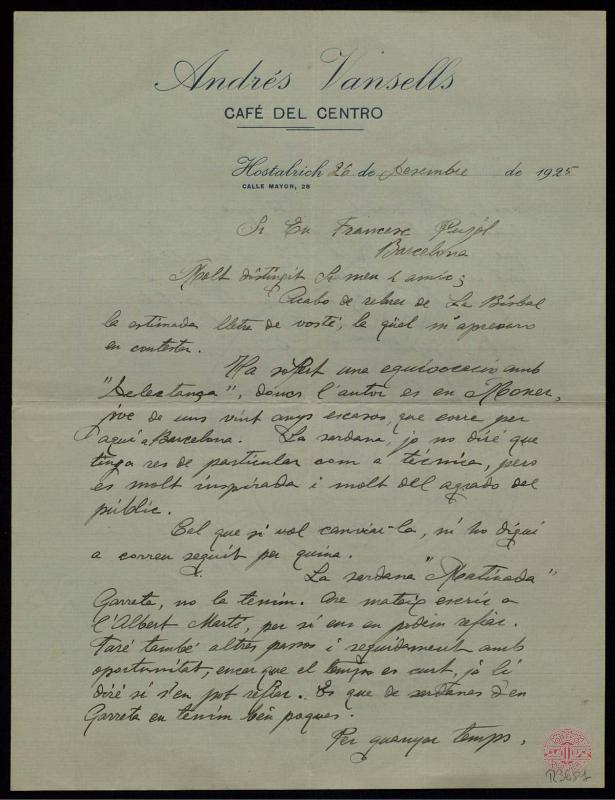 Andrés Vansells
CAFÉ DEL CENTRO
Hostalrich 26 de Desembre de 1925
CALLE MAYOR, 28
Sr En Francesc Pujól
Barcelona
Molt distingit Sr meu i amic;
Acabo de rebrer de La Bisbal
la estimada lletra de vosté, la qüel m'apresuro
en contestar.
Ha sofert una equivocació amb
"Selectanga", doncs l'autor es en Moner,
jove de uns vint anys escasos, que corre per
aqui a Barcelona. La sardana, jo no diré que
tinga res de particular com a técnica, pero
es molt inspirada i molt del agrado del
públic.
Cel que si vol canviar-la, m'ho digui
a correu seguit per quina.
La sardana "Matinada"
Garreta, no la tenim. Are mateix escric a
l'Albert Martí, per si ens en podem refiar.
Faré també altres passos i seguidament amb
oportunitat, encar que el temps es curt, ja li
diré si s'en pot refiar. Es que de sardanes d'en
Garreta en tenim bén poques.
Per guanyar temps,
R3681